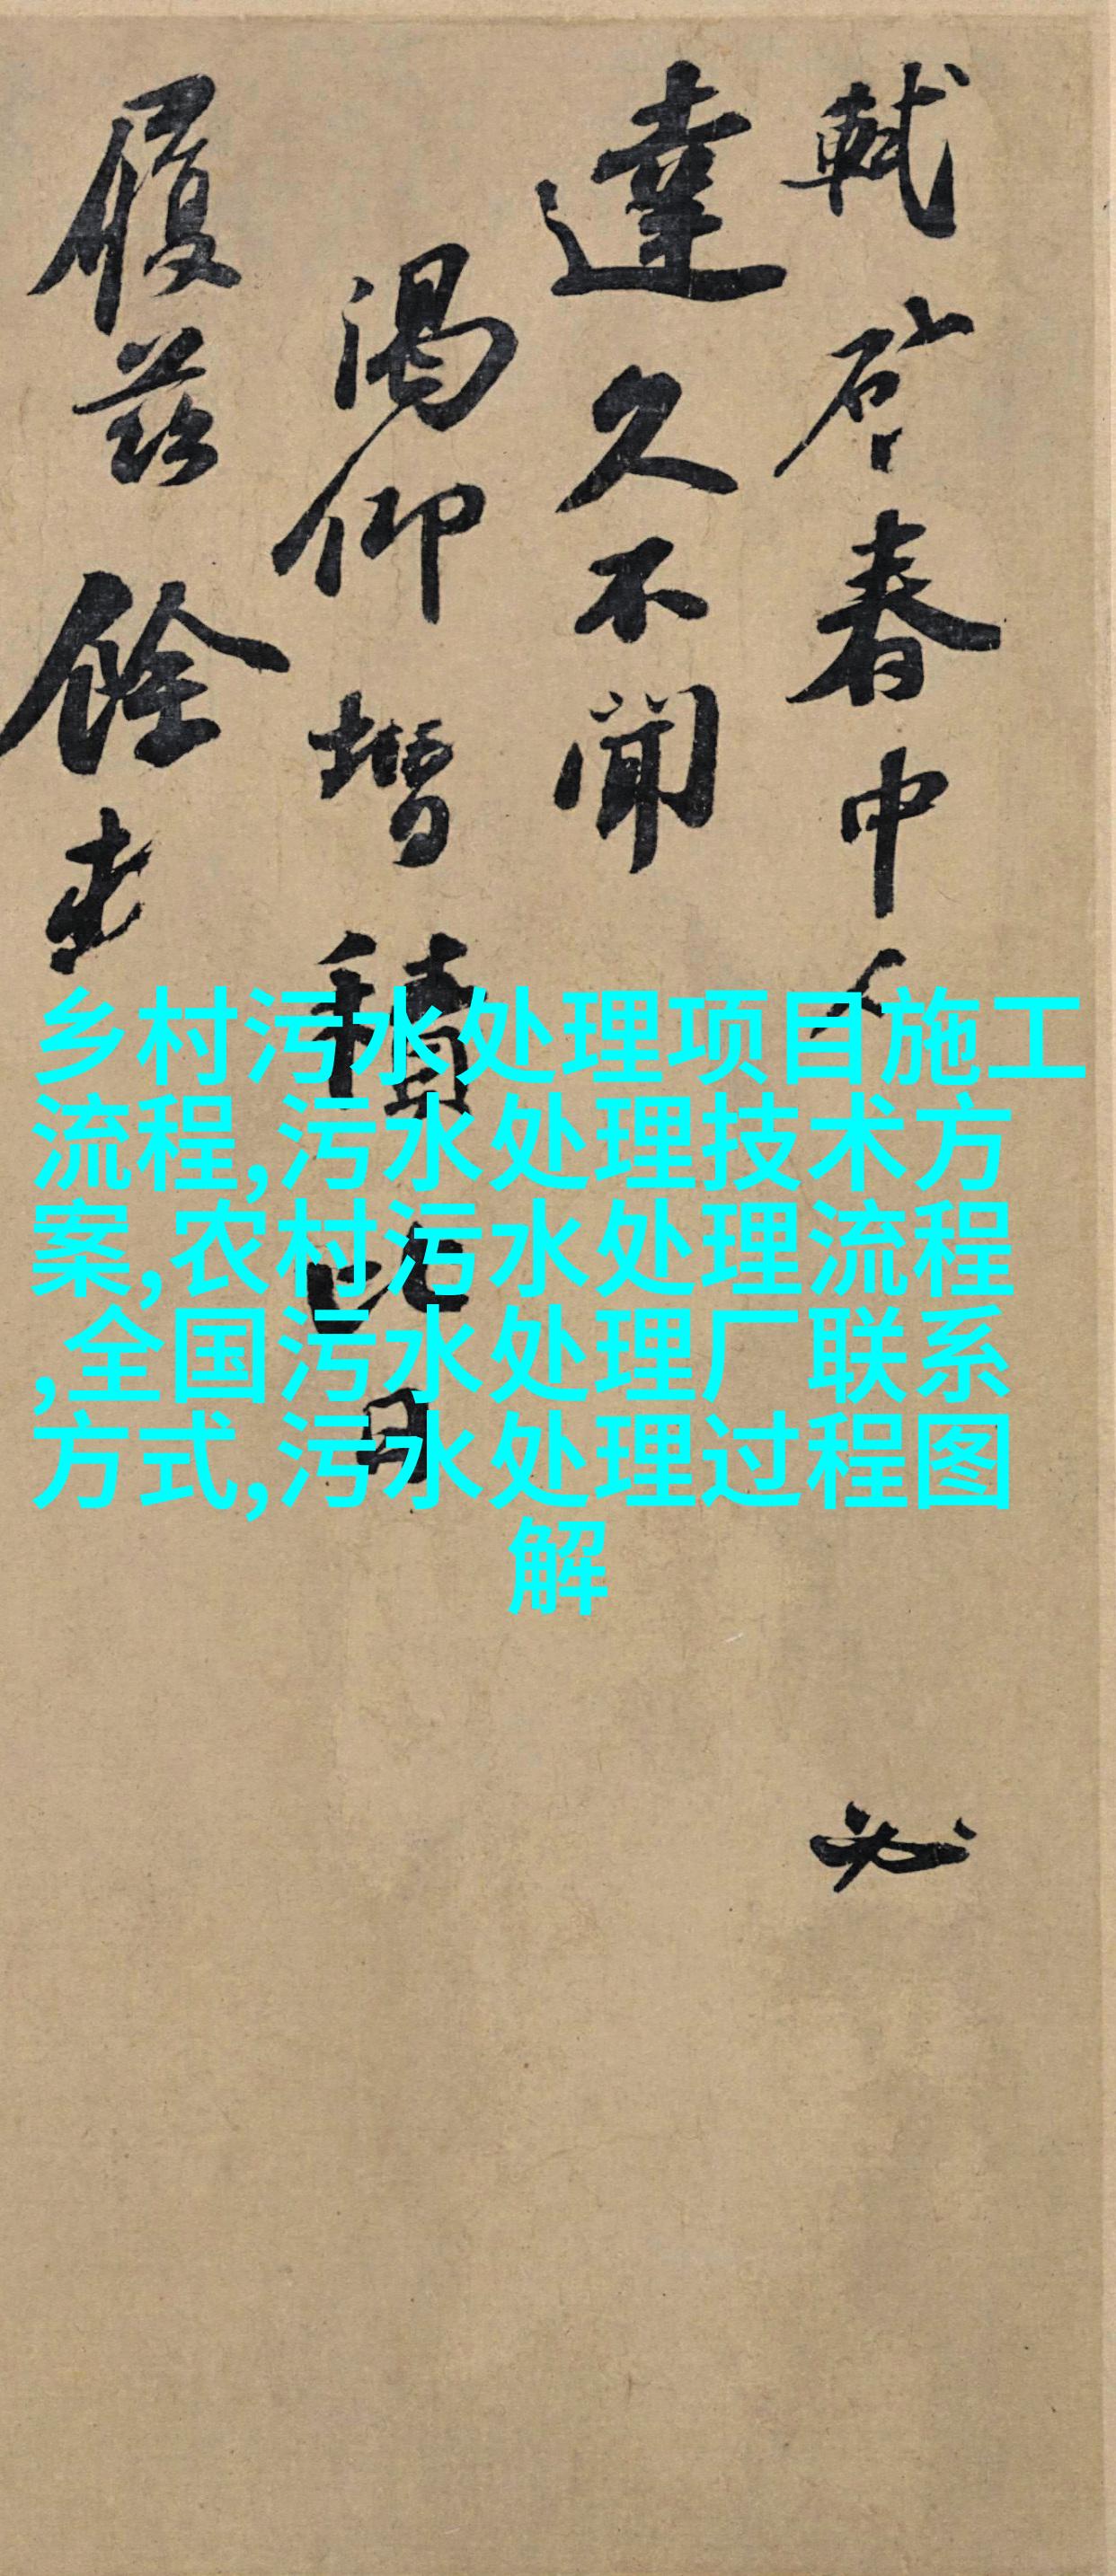 軾啓春中人必
達久不聞
渴仰增積比日
履茲餘
乡村污水处理项目施工
流程,污水处理技术方
案,农村污水处理流程
,全国污水处理厂联系
方式,污水处理过程图
解